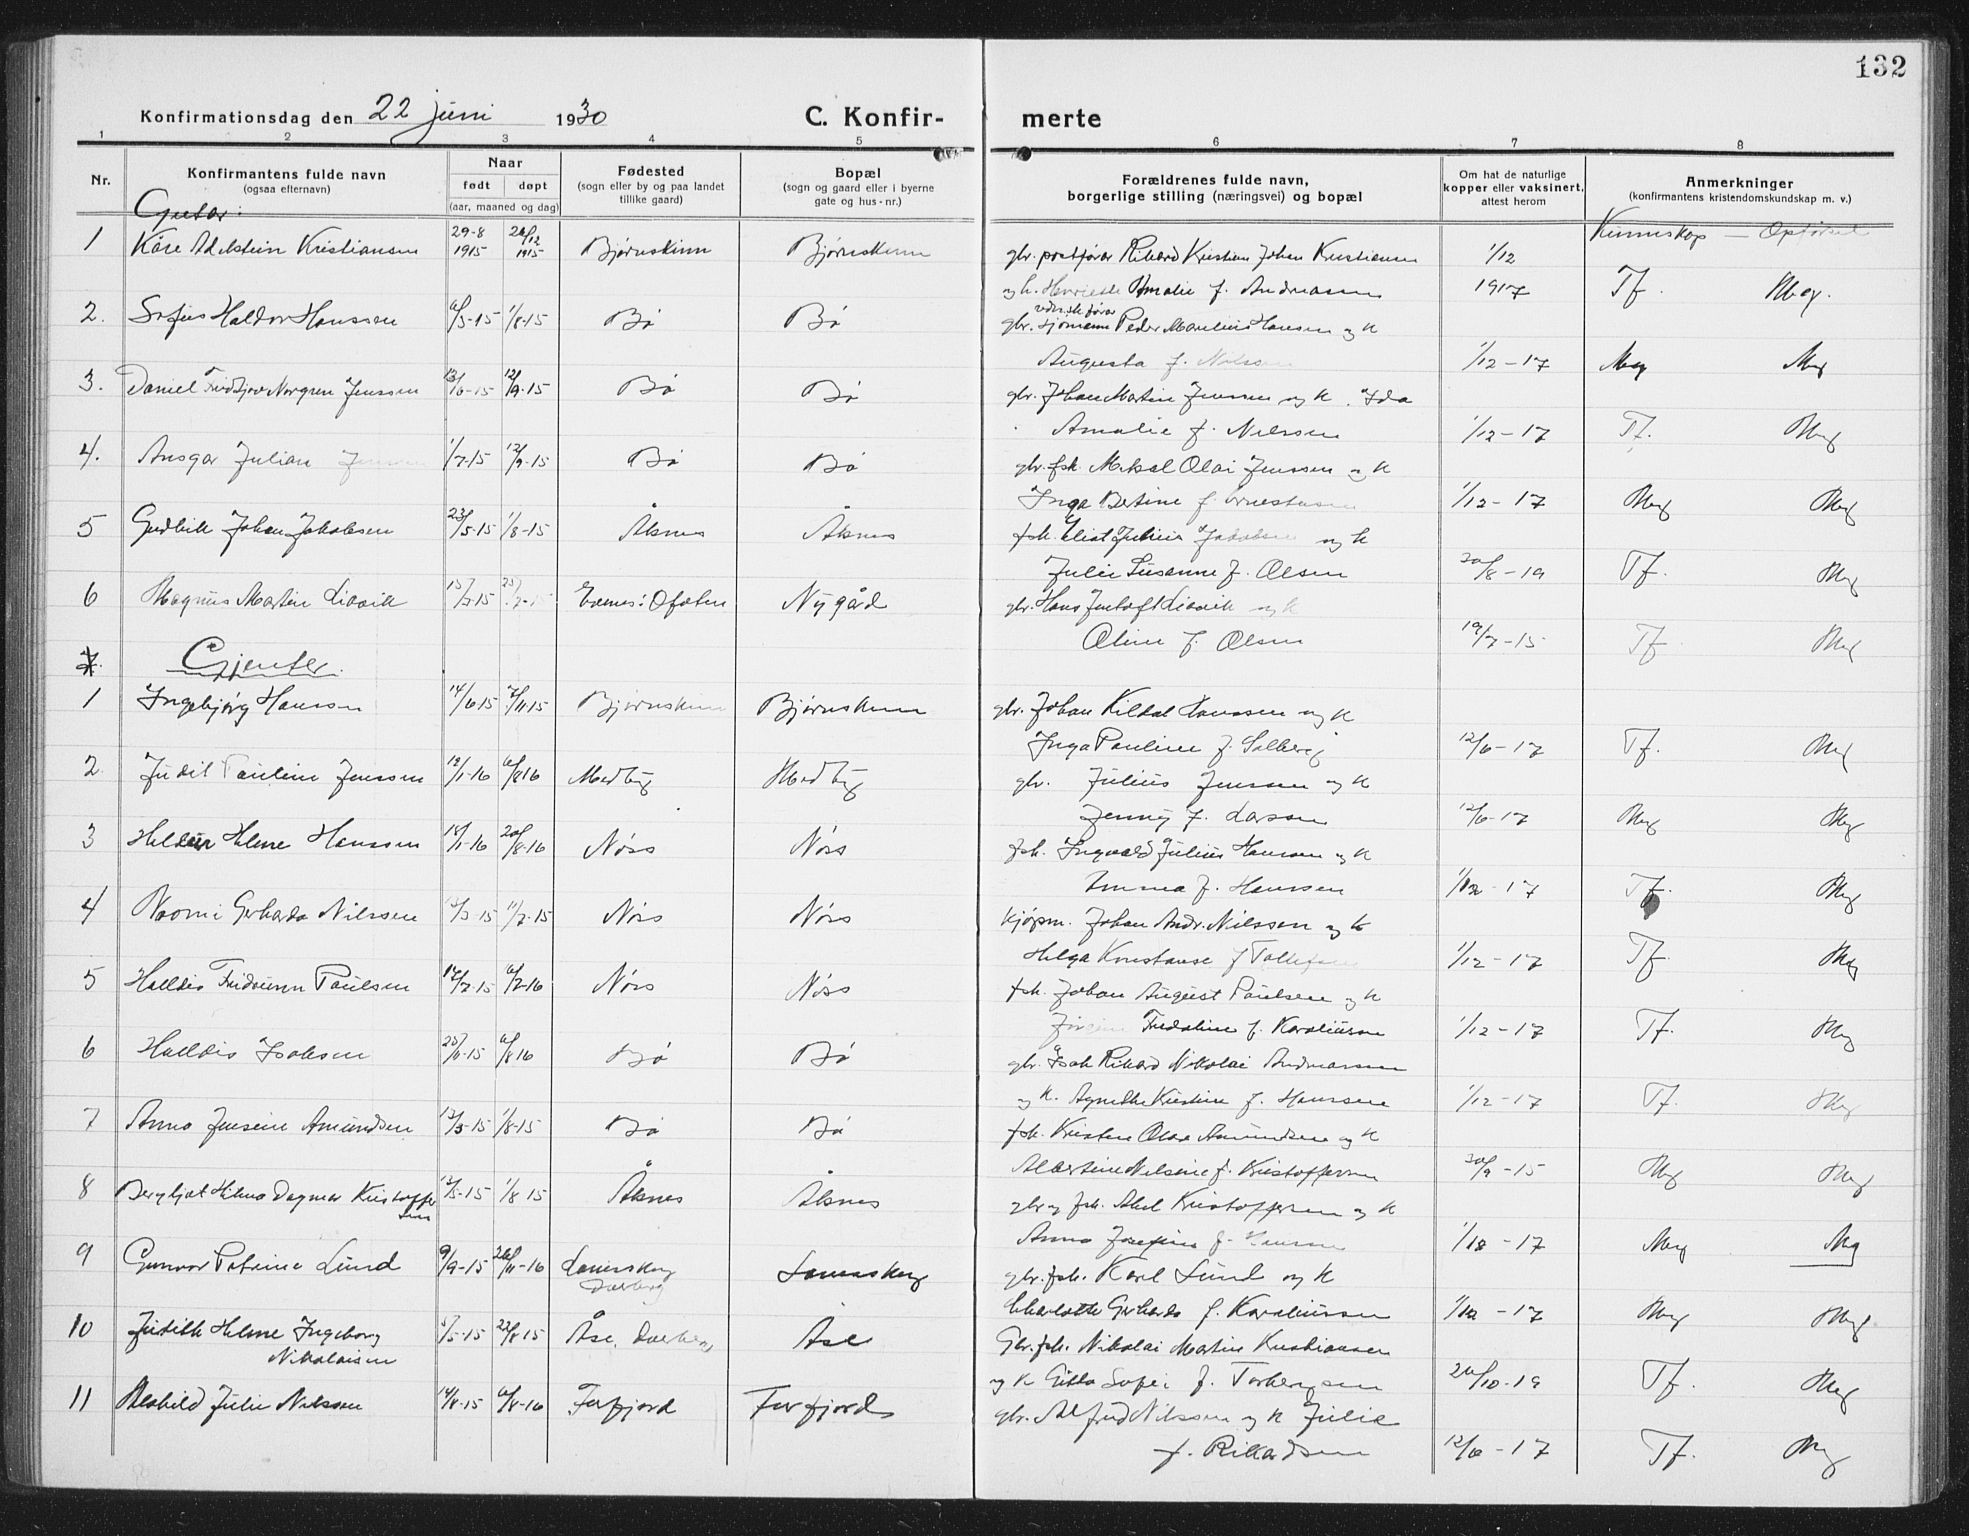 132
Konfirmationsdag den 22 juni 1930 C. Konfir- merte
1 2 3 4 5 6 7 8
Nr. Konfirmantens fulde navn (ogsaa efternavn) Naar født døpt (aar, maaned og dag) Fødested (sogn eller by og paa landet tillike gaard) Bopæl (sogn og gaard eller i byerne gate og hus-nr.) Forældrenes fulde navn, borgerlige stilling (næringsvei) og bopæl Om hat de naturlige kopper eller vaksinert, attest herom Anmerkninger (konfirmantens kristendomskundskap m. v.)
Gutar: Kunnskap — Opførsel
1 Kåre Adelstein Kristiansen 29-8 1915 26/12 1915 Bjørnskinn Bjørnskinn gbr. postfører Rikard Kristian Johan Kristiansen 1/12
og h. Henriette Amalie f. Andreassen 1917 Tf. Meg.
2. Sofus Haldor Hanssen 6/5-15 1/8-15 Bø Bø gbr. sjømann Peder Maulius Hansen og k
Augusta f. Nilsen 1/12-17 Meg Meg
3. Daniel Fridtjov Norgren Jenssen 13/6-15 12/9-15 Bø Bø gbr. Johan Martin Jenssen og k. Ida
Amalie f. Nilssen 1/12-17 Tf. Meg
4. Ansgar Julian Jenssen 1/7-15 12/9-15 Bø Bø gbr. fsk. Meksal Olai Jenssen og k
Inga Bertine f. 1/12-17 Meg Meg
5 Gudleik Johan Jakobsen 23/5-15 1/8-15 Åknes Åknes fsk. Eliot Julius Jakobsen og k
Julie Susanne f. Olsen 30/8-19 Tf. Meg
6 Magnus Martin Liavik 15/3-15 Evenes i Ofoten Nygård gbr. Hans Jentoft Liavik og k
Oline f. Olsen 19/7-15 Tf Meg
7. Gjenter.
1 Ingebjørg Hanssen 14/6-15 7/11-15 Bjørnskinn Bjørnskinn gbr. Johan Kildal Hanssen og k
Inga Pauline f. Solberg 12/6-17 Tf. Meg
2 Judit Pauline Jenssen 12/1-16 6/8 16 Medby Medby gbr. Julius Jenssen og k
Jenny f. Larssen 12/6-17 Meg Meg
3 Helme Hanssen 18/1-16 20/8-16 Nøss Nøss fsk. Ingvald Julius Hansen og k
Emma f. Hanssen 1/12-17 Tf. Meg
4 Naomi Gerharda Nilssen /3-15 11/7-15 Nøss Nøss Kjøpm. Johan Andr. Nilssen og k
Helga Konstanse f Tollefsen 1/12-17 Tf Meg
5 Halldis Fridunn Paulsen 17/7-15 6/2-16 Nøss Nøss fsk. Johan August Paulsen og k
Fredaline f. Karoliussen 1/12-17 Tf. Meg
6 Halldis Isaksen 25/6-15 6/8 16 Bø Bø gbr. Isak Rikard Nikolai Andreassen
og k. Agnethe Kristine f. Hanssen 1/12-17 Tf. Meg
7 Anna Jensine Amundsen 12/3-15 1/8-15 Bø Bø fsk. Kristen Olav Amundsen og k
Albertine Nilsine f. Kristoffersen 30/9-15 Meg Meg
8 Bergljot Hilma Dagmar Kristoffer
sen 12/5-15 1/8 15 Åknes Åknes gbr og fsk. Aksel Kristoffersen og k
Anna Josefine f. Hanssen 1/12-17 Meg Meg
9 Gunvor Petrine Lund 9/9-15 26/11-16 Laneskog Dverberg Laneskog gbr. fsk. Karl Lund og k
Charlotte Gerharda f. Karoliussen 1/12-17 Meg Meg
10 Judith Helme Ingeborg
Nikolaisen 5/5-15 22/8-15 Åse, Dverberg Åse Gbr. fsk. Nikolai Martin Kristiansen
og k Gitta Sofie f. Torbergsen 20/10-19 Tf. Meg
11 Alshild Julie Nilssen 14/8-15 6/8-16 Forfjord Forfjord gbr. Alfred Nilssen og k Julie
f. Rikardsen 12/6-17 Tf. Meg